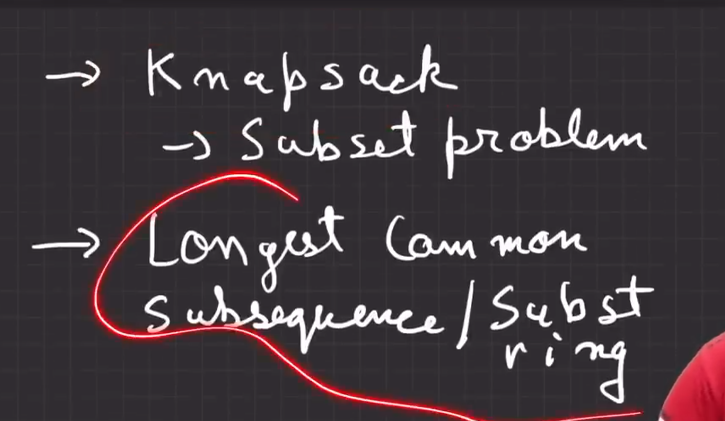 → Knapsack
→ Subset problem
→ Longest Common
Subsequence/Subst
ring